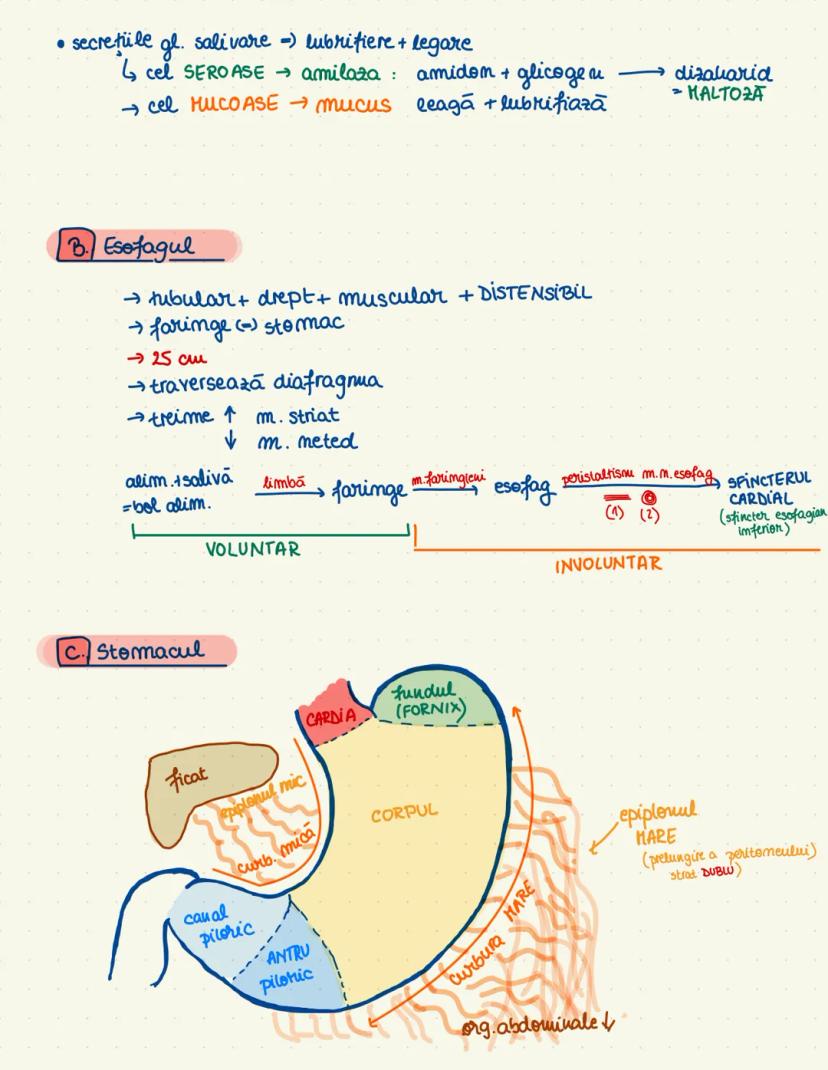 • secrețiile gl. salivare => lubrifiere + legare
↳ cel SEROASE → amilaza : amidon + glicogen → dizaharid
= MALTOZĂ
→ cel MUCOASE → mucus leagă + lubrifiază
B. Esofagul
→ tubular + drept + muscular + DISTENSIBIL
→ faringe (-) stomac
→ 25 cm
→ traversează diafragma
→ treime ↑ m. striat
↓ m. neted
alim. + salivă limbă → faringe m. faringieni → esofag peristaltism m.n. esofag → SFINCTERUL
= bol alim. (1) (2) CARDIAL
(sfincter esofagian
inferior)
VOLUNTAR
INVOLUNTAR
C. Stomacul
fundul
(FORNIX)
CARDIA
ficat
epiplonul mic
CORPUL
curb. mică
epiplonul
MARE
(prelungire a peritoneului)
strat DUBLU)
canal
piloric
ANTRU
piloric
curbura MARE
org. abdominale ↓